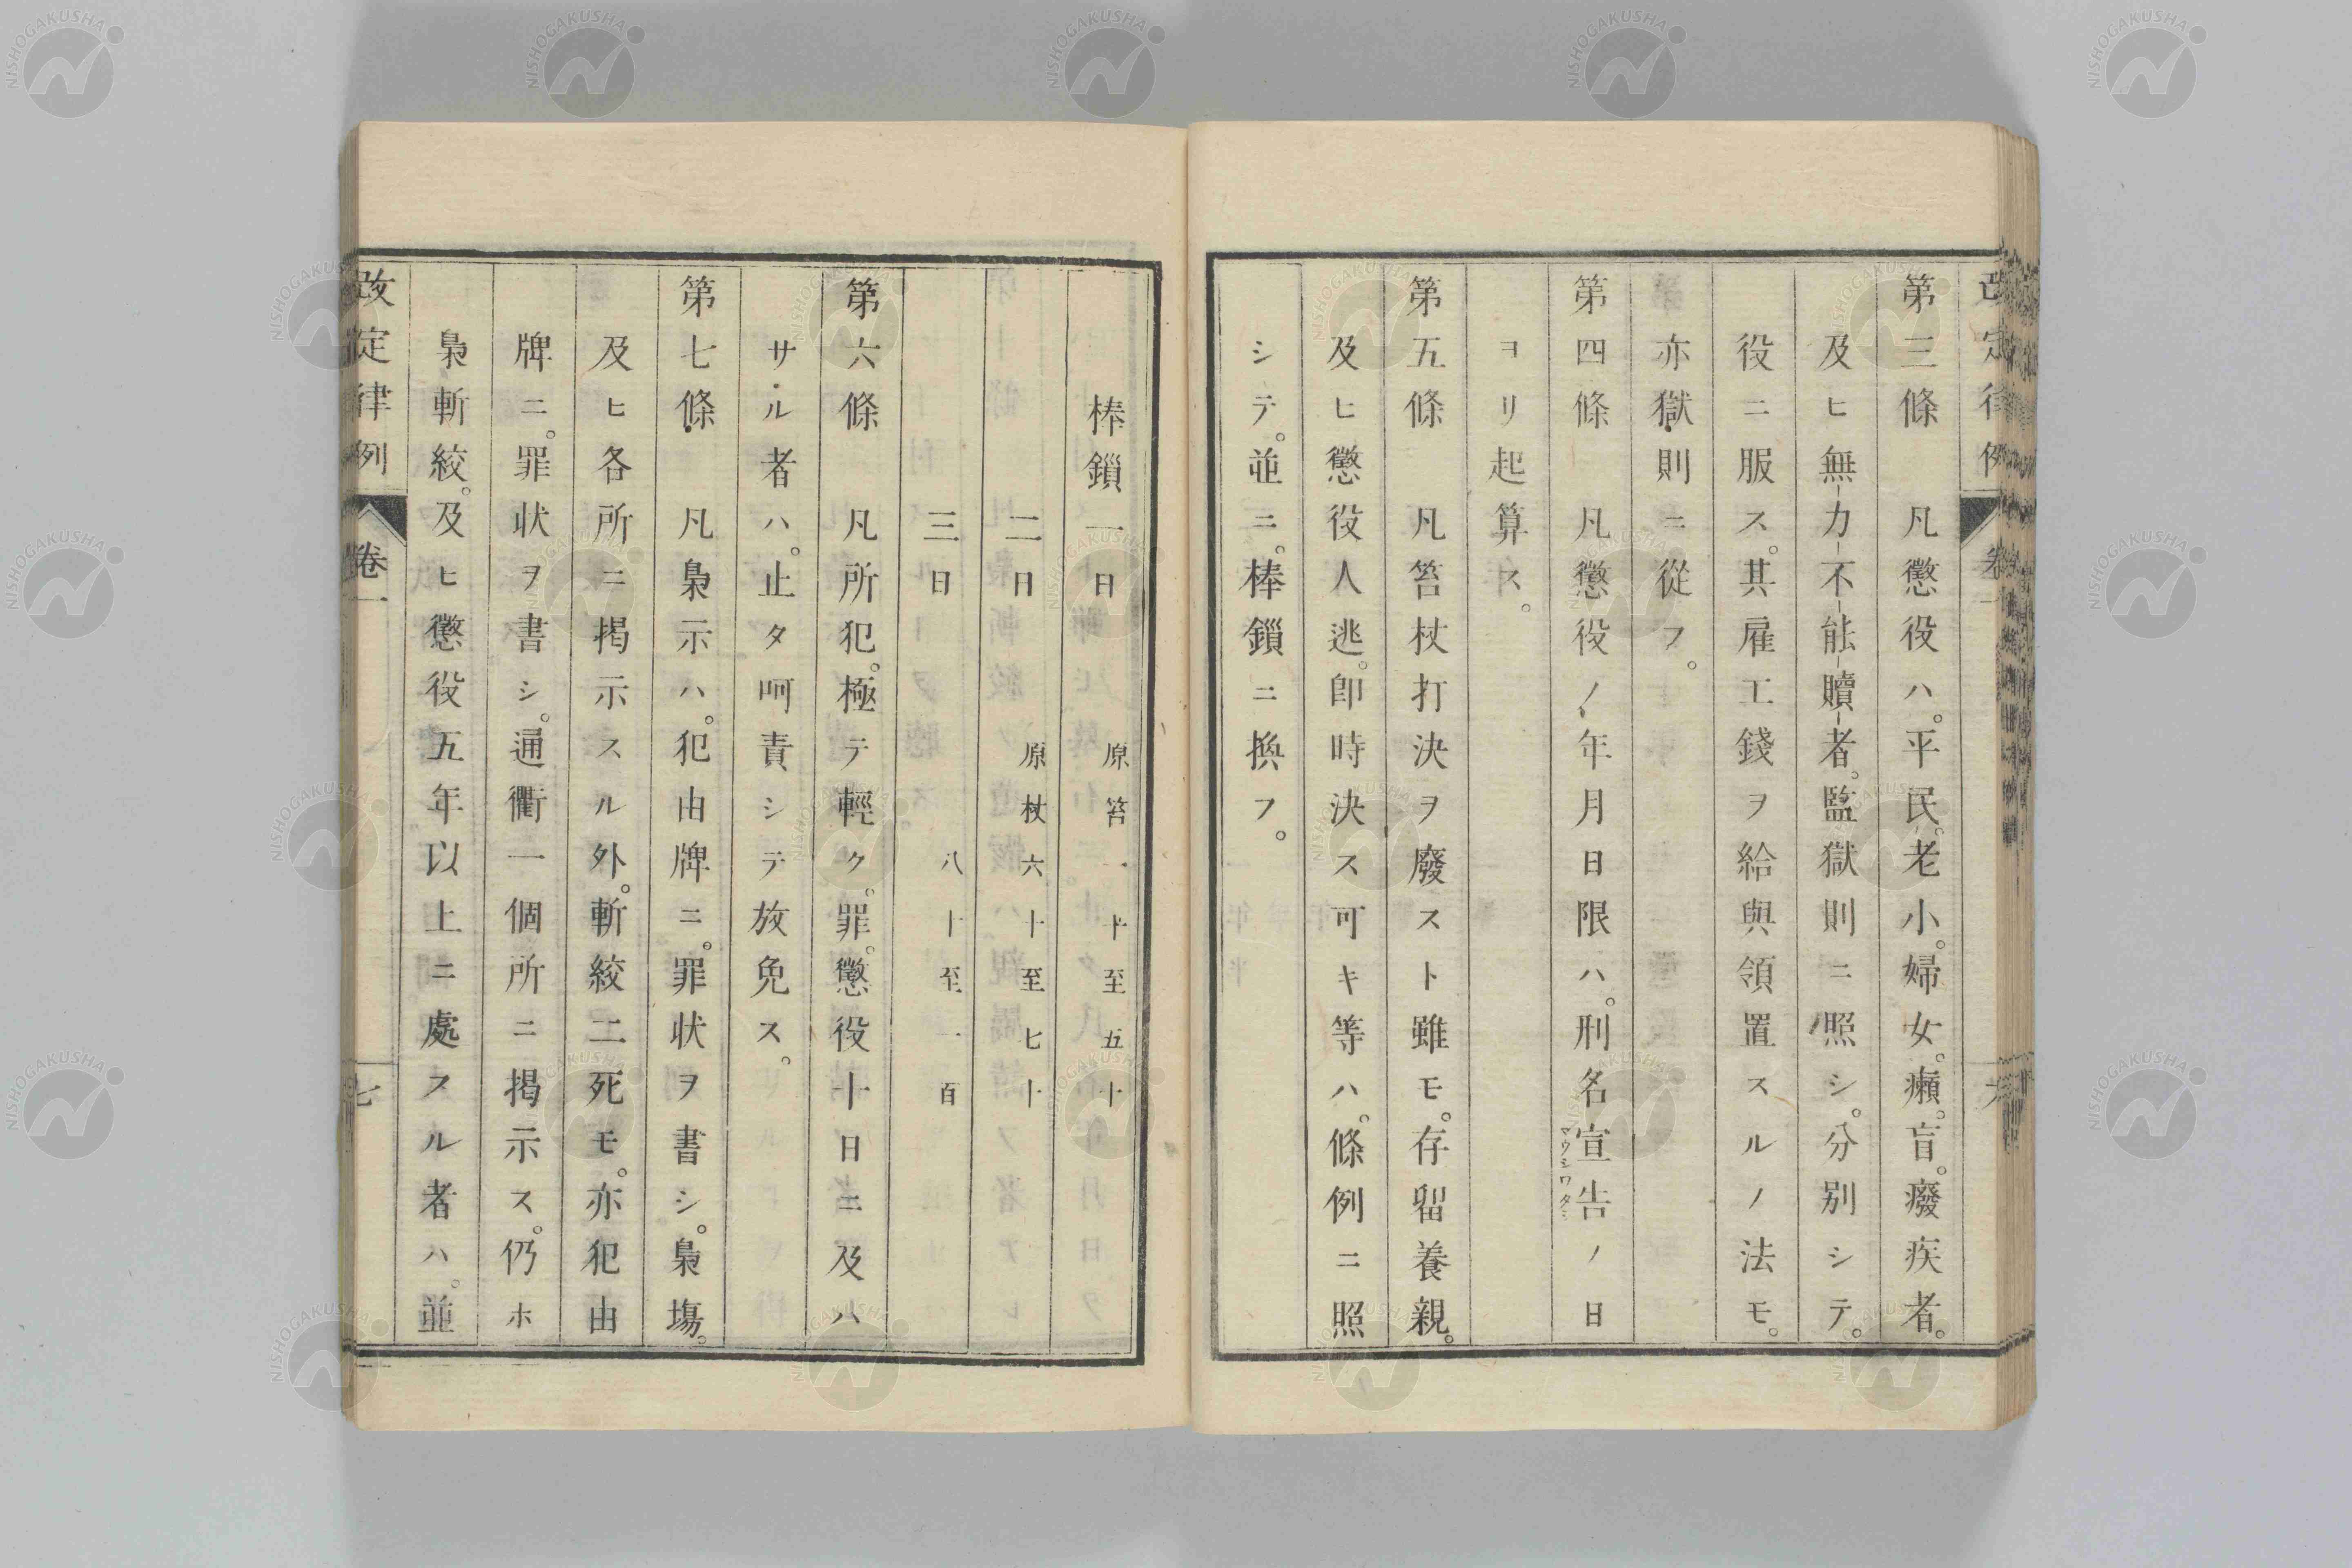 第三條　凡懲役ハ。平民。老小。婦女。癩。盲。癈疾者。
及ヒ無-力-不-能-贖-者。監獄則ニ照シ。分別シテ。
役ニ服ス。其雇工錢ヲ給與領置スルノ法モ。
亦獄則ニ從フ。
第四條　凡懲役ノ年月日限ハ。刑名宣告ノ日
マウシワタシ
ヨリ起算ス。
第五條　凡笞杖打決ヲ廢スト雖モ。存留養親。
及ヒ懲役人逃。即時決ス可キ等ハ。條例ニ照
シテ。並ニ。棒鎖ニ換フ。
棒鎖一日　原笞一十至五十
二日　原杖六十至七十
三日　八十至一百
第六條　凡所犯。極テ輕ク。罪。懲役十日ニ及ハ
サル者ハ。止タ呵責シテ放免ス。
第七條　凡梟示ハ。犯由牌ニ。罪状ヲ書シ。梟塲。
及ヒ各所ニ掲示スル外。斬絞二死モ。亦犯由
牌ニ。罪状ヲ書シ。通衢一個所ニ掲示ス。仍ホ
梟斬絞。及ヒ懲役五年以上ニ處スル者ハ。並
改定律例　卷一　七
NISHOGAKUSHA